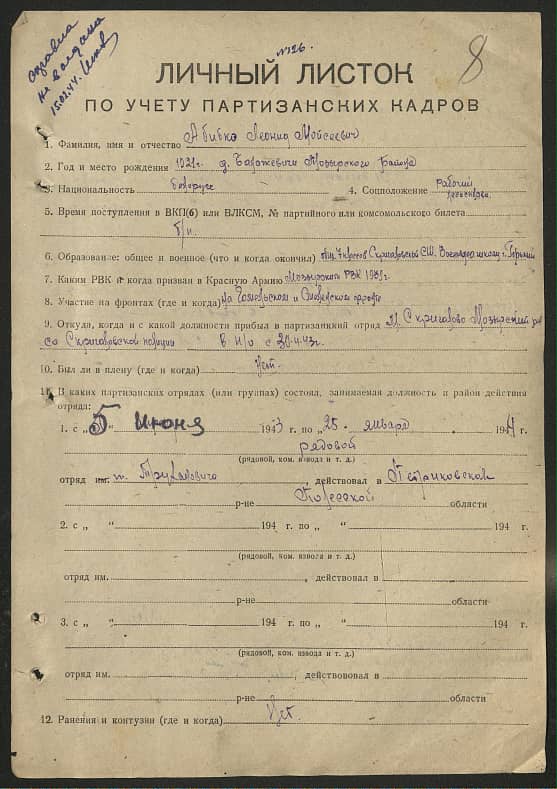 Справка
не выдана
15.02.44.
№126.
8
ЛИЧНЫЙ ЛИСТОК
ПО УЧЕТУ ПАРТИЗАНСКИХ КАДРОВ
1. Фамилия, имя и отчество Абибко Леонид Мойсеевич
2. Год и место рождения 1921г. д. Мозырского района
3. Национальность белорус 4. Соцположение рабочий
5. Время поступления в ВКП(б) или ВЛКСМ, № партийного или комсомольского билета
б/п.
6. Образование: общее и военное (что и когда окончил) 7 классов СШ.
7. Каким РВК и когда призван в Красную Армию Мозырским РВК 1939г.
8. Участие на фронтах (где и когда) на и фронте
9. Откуда, когда и с какой должности прибыл в партизанский отряд м. Скригалово Мозырский
со Скригаловской полиции в п/о с
10. Был ли в плену (где и когда) нет.
11. В каких партизанских отрядах (или группах) состоял, занимаемая должность и район действия
отряда:
1. с „ 5 “ Июня 1943 г. по „ 25 “ января 1944 г.
рядовой
(рядовой, ком. взвода и т. д.)
отряд им. т. действовал в Петриковском
р-не Полесской области
2. с „ “ 194 г. по „ “ 194 г.
(рядовой, ком. взвода и т. д.)
отряд им. , действовал в
р-не области
3. с „ “ 194 г. по „ “ 194 г.
(рядовой, ком. взвода и т. д.)
отряд им. , действововал в
р-не области
12. Ранения и контузии (где и когда) Нет.